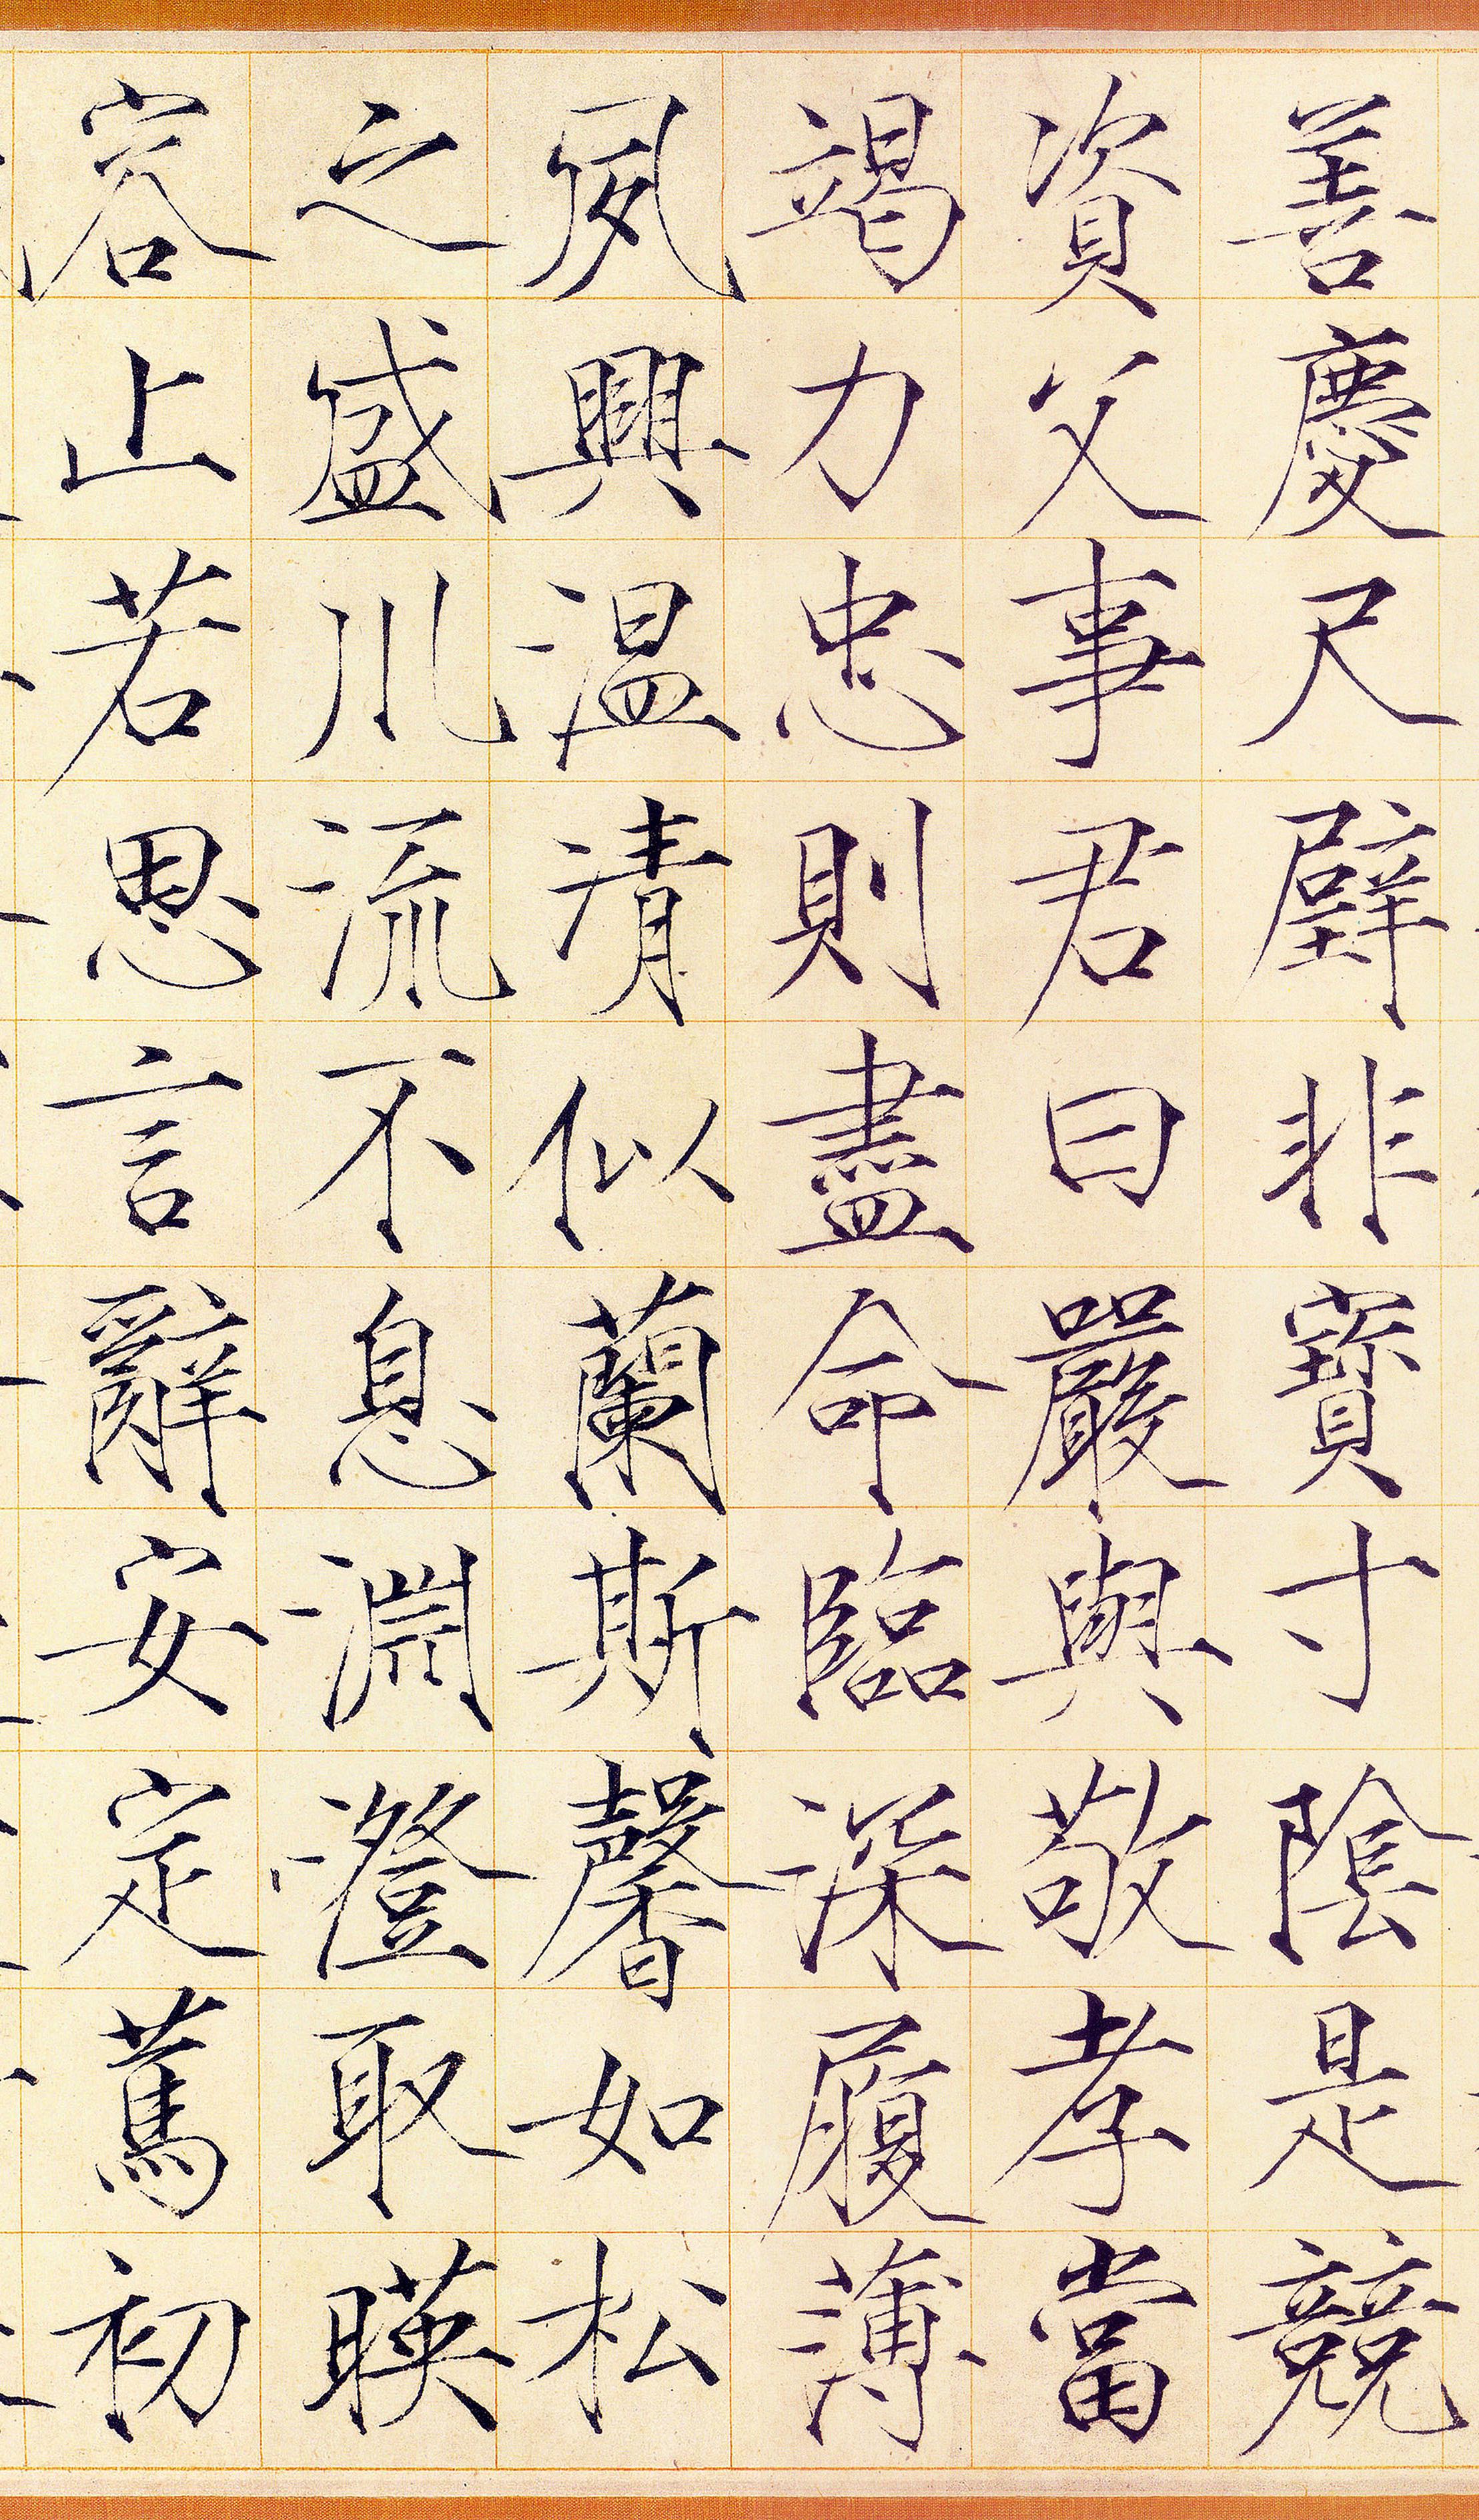 善慶尺璧非寶寸陰是競
資父事君曰嚴與敬孝當
竭力忠則盡命臨深履薄
夙興温凊似蘭斯馨如松
之盛川流不息淵澄取暎
容止若思言辭安定篤初